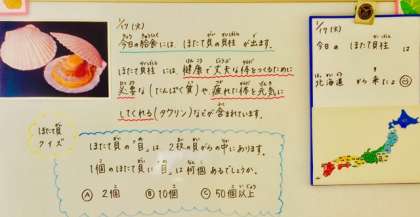 1/17 (火)
今日の給食には、ほたて貝の貝柱 が出ます。
ほたて貝柱 には、健康で丈夫な体をつくるために
必要な(たんぱく質)や、疲れた体を元気に
してくれる(タウリン)などが含まれています。
ほたて貝
クイズ
ほたて貝の"目"は、2枚の貝がらの中にあります。
1個のほたて貝に"目"は何個あるでしょうか。
Ⓐ 2個 Ⓑ 10個 Ⓒ 50個以上
1/17 (火)
今日の ほたて貝柱 は
北海道 から来たよ